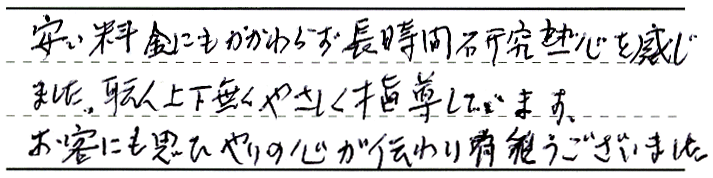 安い料金にもかかわらず長時間研究熱心を感じ
ました。職人上下無くやさしく指導してます。
お客にも思ひやりの心が伝わり有難うございました